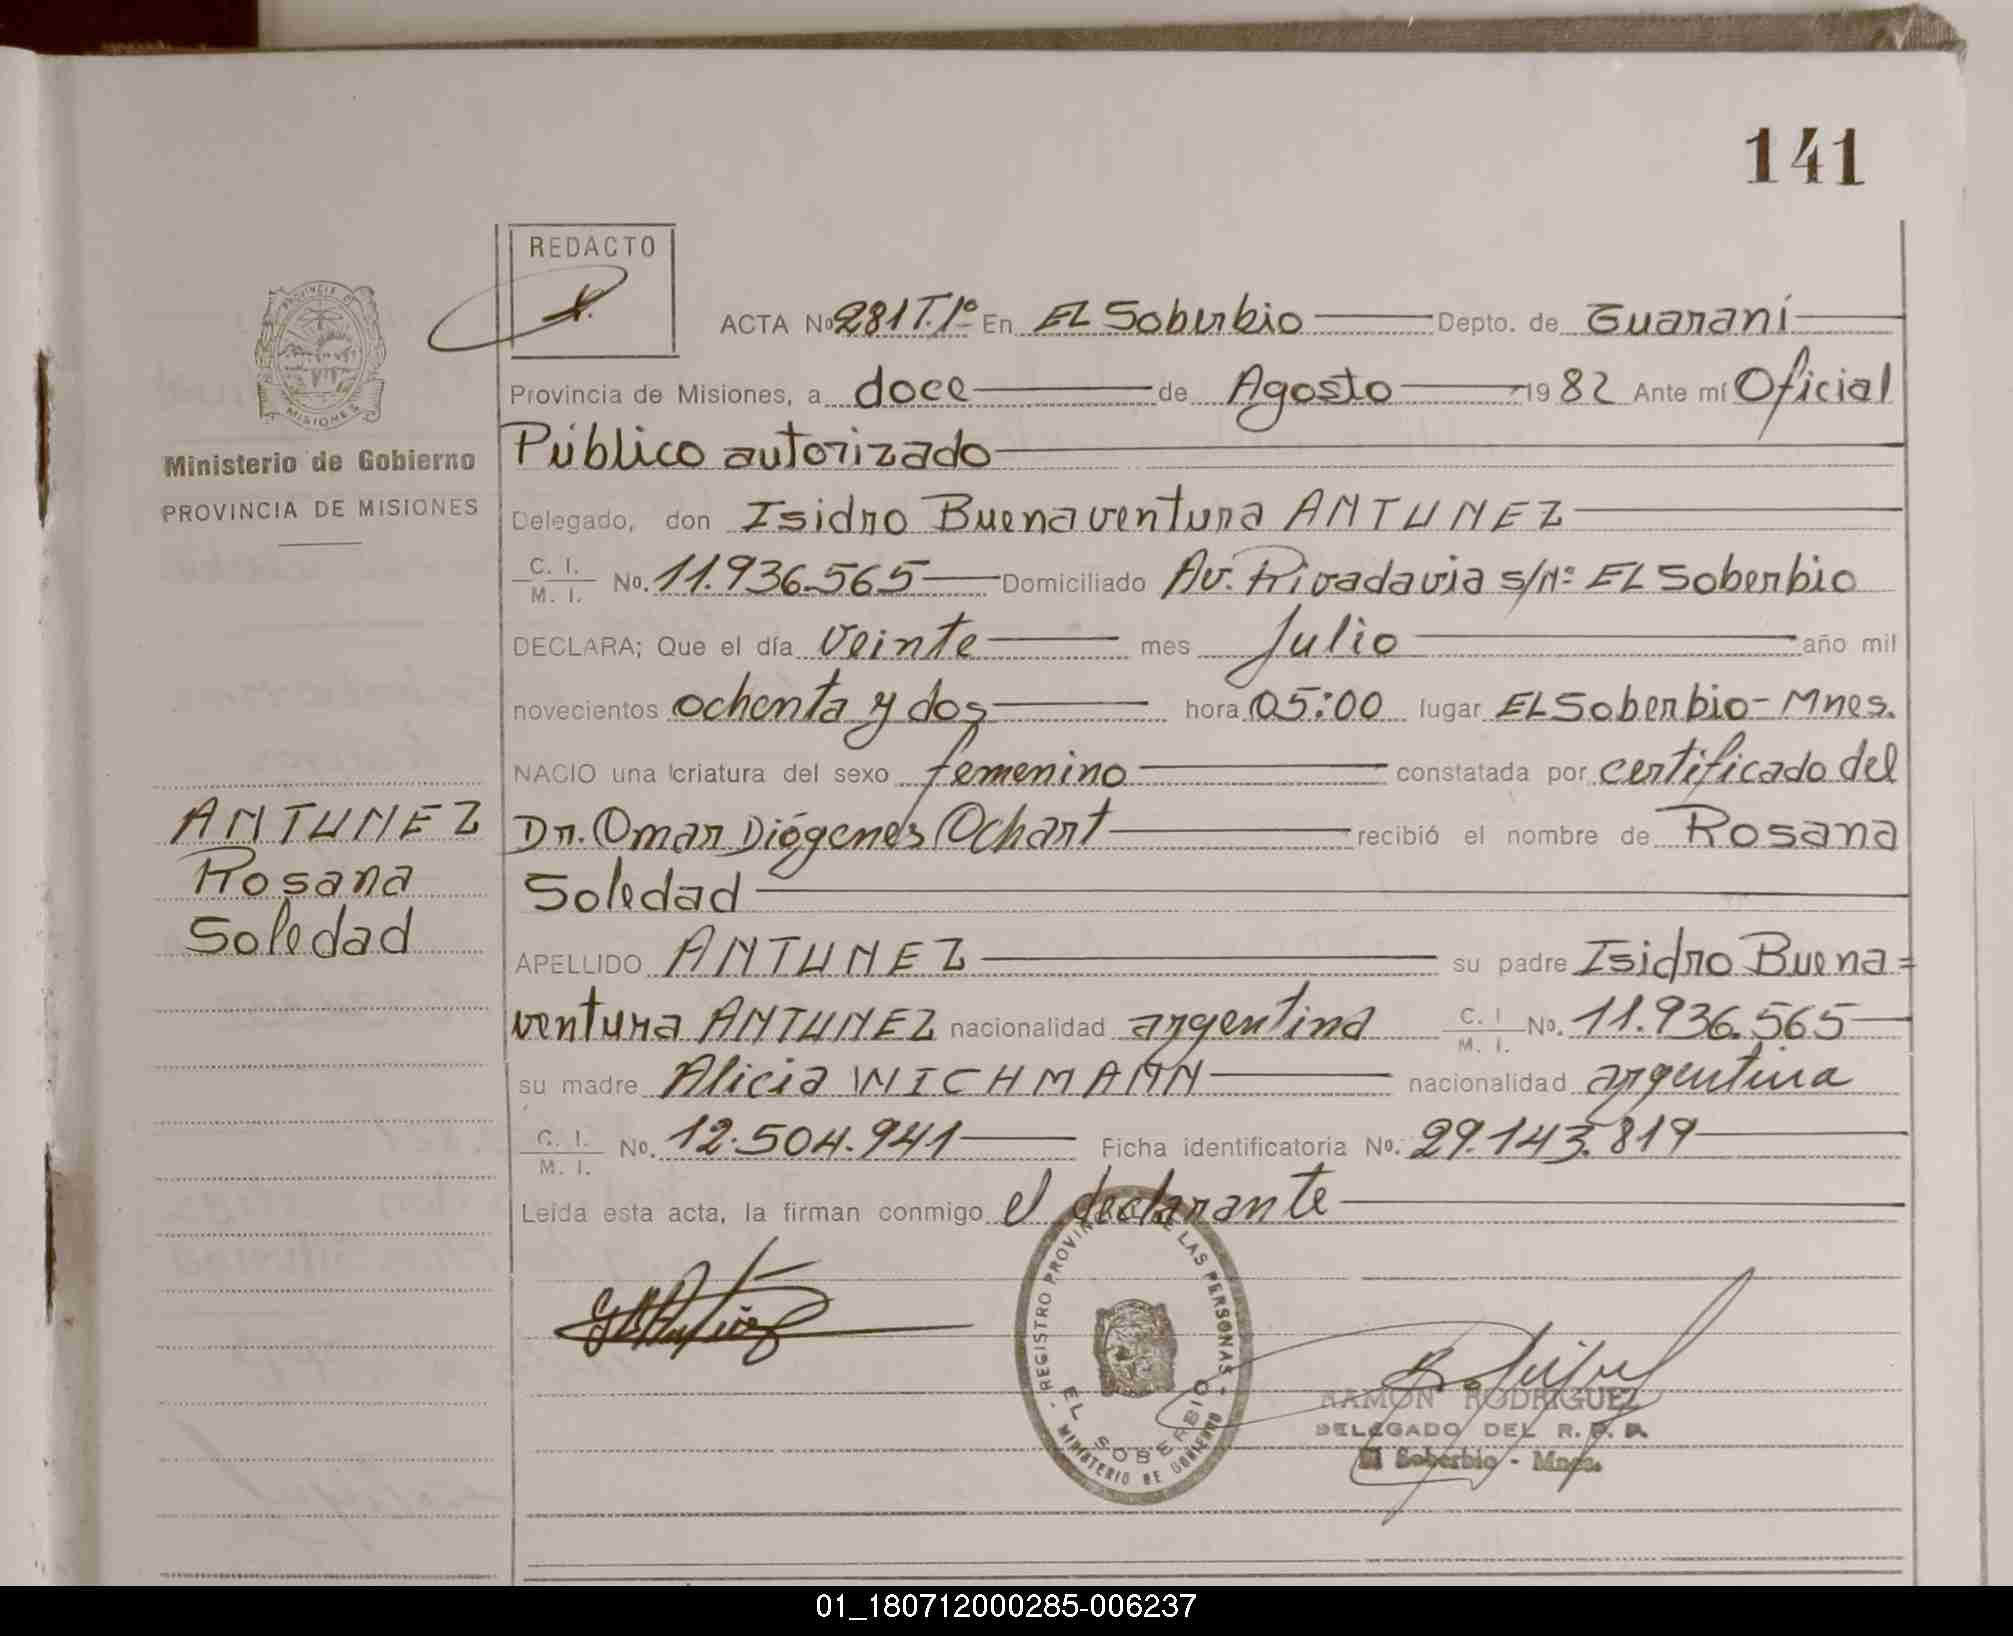 141
REDACTO
ACTA Nº 281 T. 1º En EL Soberbio Depto. de Guaraní
PROVINCIA DE MISIONES
Provincia de Misiones, a doce de Agosto 1982 Ante mí Oficial
Ministerio de Gobierno
Público autorizado
PROVINCIA DE MISIONES
Delegado, don Isidro Buenaventura ANTUNEZ
C. I. M. I. No. 11.936.565 Domiciliado Av. Rivadavia s/Nº EL Soberbio
DECLARA; Que el día veinte mes Julio año mil
novecientos ochenta y dos hora 05:00 lugar EL Soberbio - Mnes.
NACIO una criatura del sexo femenino constatada por certificado del
ANTUNEZ
Dr. Omar Diógenes Ochart recibió el nombre de Rosana
Rosana
Soledad
Soledad
APELLIDO ANTUNEZ su padre Isidro Buena=
ventura ANTUNEZ nacionalidad argentina C. I M. I. No. 11.936.565
su madre Alicia WICHMANN nacionalidad argentina
C. I. M. I. No. 12.504.941 Ficha identificatoria No. 29.143.819
Leída esta acta, la firman conmigo el declarante
REGISTRO PROVIN LAS PERSONAS
EL SOBERBIO
MINISTERIO DE GOBIERNO
RAMON RODRIGUEZ
DELEGADO DEL R. P. P.
El Soberbio - Mnes.
01_180712000285-006237